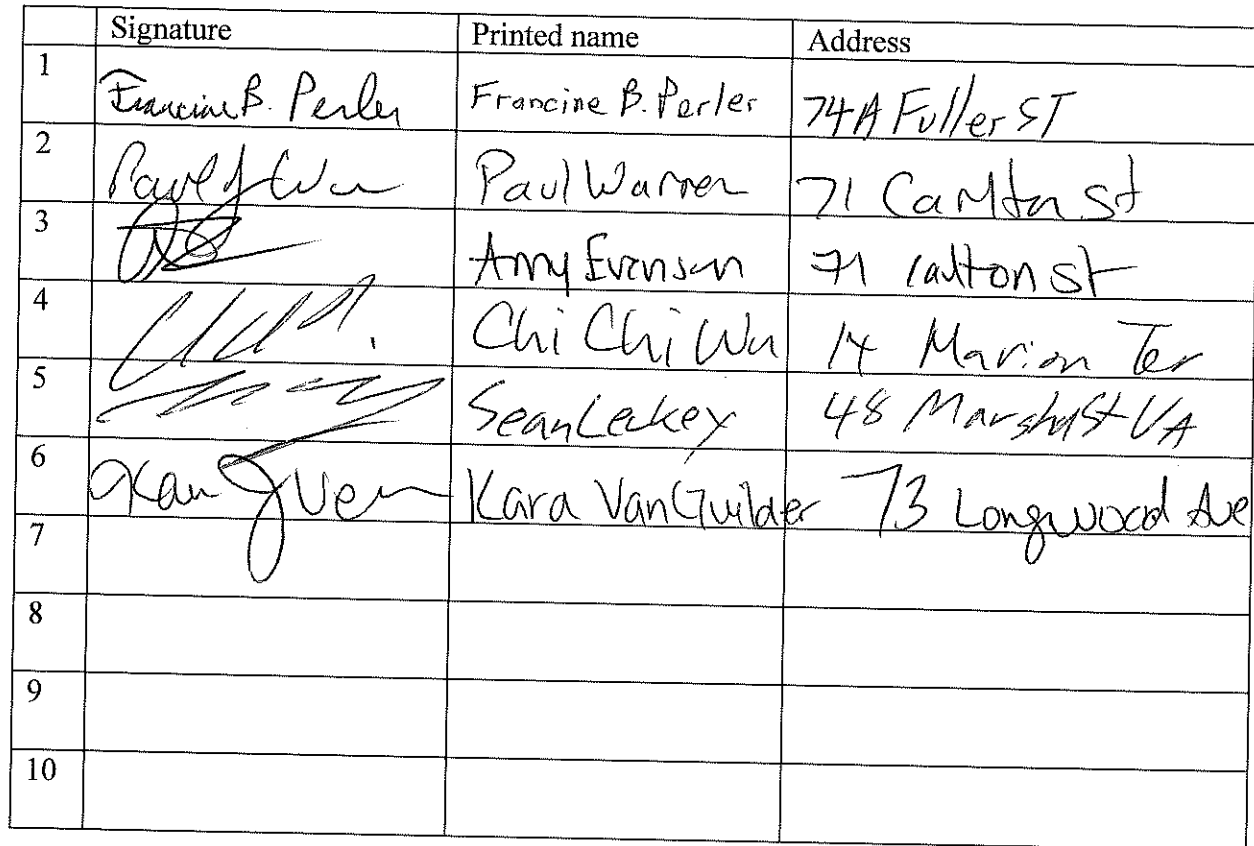 Signature Printed name Address
1 Francine B. Perler Francine B. Perler 74A Fuller ST
2 Paul Warren 71 Carlton St
3 Amy Evenson 71 Carlton St
4 Chi Chi Wu 14 Marion Ter
5 Sean Leckey 48 Marshal St
6 Kara VanGuilder 73 Longwood Ave
7
8
9
10